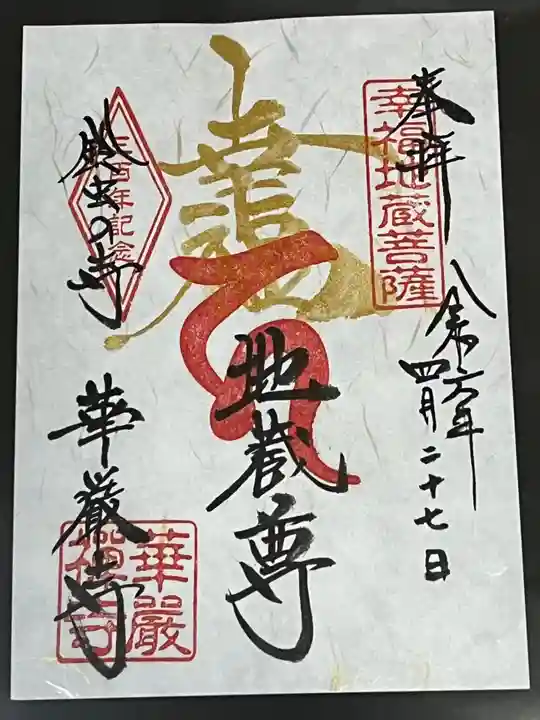 奉拝
幸福地蔵菩薩
令和六年
四月二十七日
幸福
地蔵尊
三百年記念
鈴虫の寺
華厳寺
華嚴禪寺